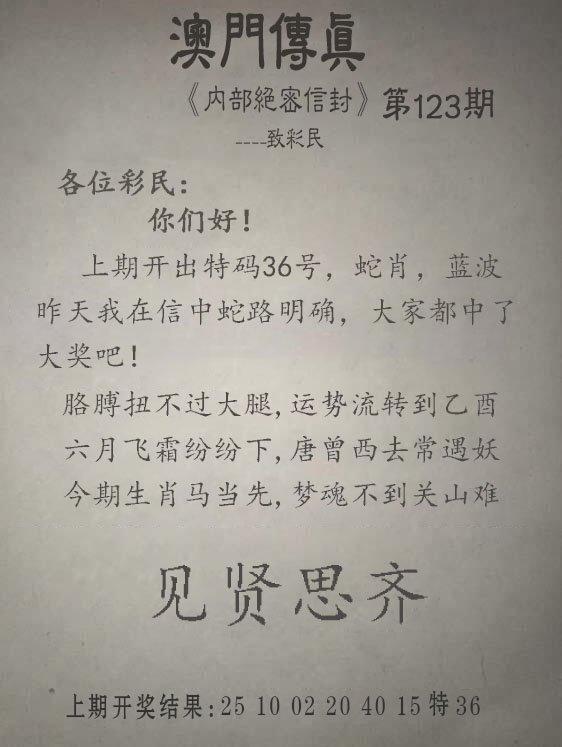 澳門傳眞
《内部絕密信封》第123期
----致彩民
各位彩民：
你们好！
上期开出特码36号，蛇肖，蓝波
昨天我在信中蛇路明确，大家都中了
大奖吧！
胳膊扭不过大腿,运势流转到乙酉
六月飞霜纷纷下,唐曾西去常遇妖
今期生肖马当先,梦魂不到关山难
见贤思齐
上期开奖结果:25 10 02 20 40 15特36